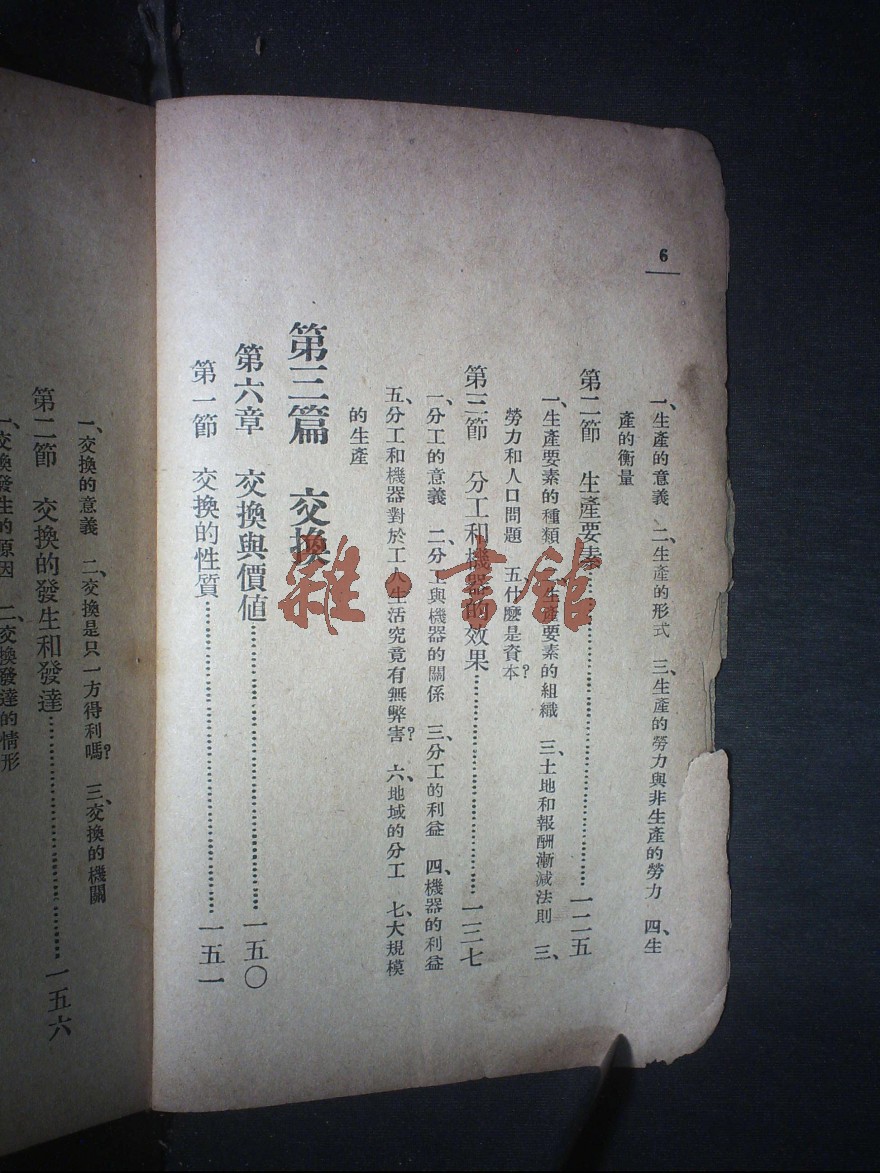 6
一、生產的意義　二、生產的形式　三、生產的勞力與非生產的勞力　四、生
產的衡量
第二節　生產要素……………………一二五
一、生產要素的種類　二、生產要素的組織　三、土地和報酬漸減法則　三、
勞力和人口問題　五、什麼是資本？
第三節　分工和機器的效果……………………一三七
一、分工的意義　二、分工與機器的關係　三、分工的利益　四、機器的利益
五、分工和機器對於工人生活究竟有無弊害？　六、地域的分工　七、大規模
的生產
第三篇　交換
第六章　交換與價值……………………一五〇
第一節　交換的性質……………………一五一
一、交換的意義　二、交換是只一方得利嗎？　三、交換的機關
第二節　交換的發生和發達……………………一五六
一、交換發生的原因　二、交換發達的情形
雜·書館